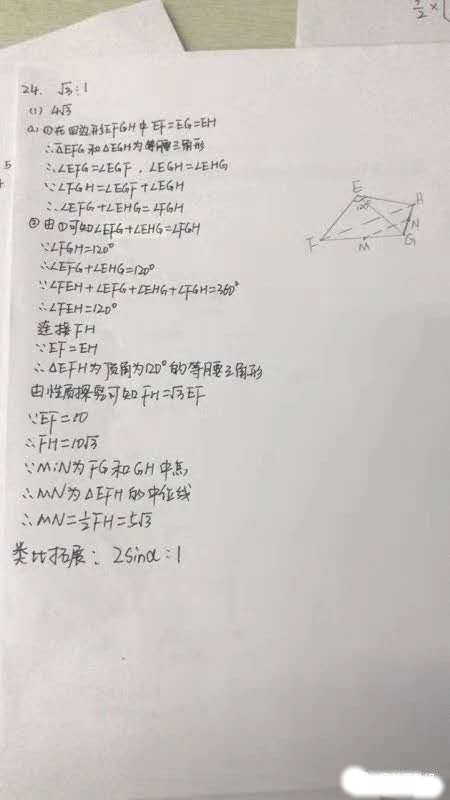 24. √3:1
(1) 4√3
(2) ①在四边形EFGH中EF=EG=EH
∴△EFG和△EGH为等腰三角形
∴∠EFG=∠EGF，∠EGH=∠EHG
∵∠FGH=∠EGF+∠EGH
∴∠EFG+∠EHG=∠FGH
②由①可知∠EFG+∠EHG=∠FGH
∵∠FGH=120°
∴∠EFG+∠EHG=120°
∵∠FEH+∠EFG+∠EHG+∠FGH=360°
∴∠FEH=120°
连接FH
∵EF=EH
∴△EFH为顶角为120°的等腰三角形
由性质探究可知FH=√3EF
∵EF=10
∴FH=10√3
∵M、N为FG和GH中点
∴MN为△EFH的中位线
∴MN=½FH=5√3
类比拓展：2sinα:1
E
120°
H
N
F
M
G
3/2 ×
5